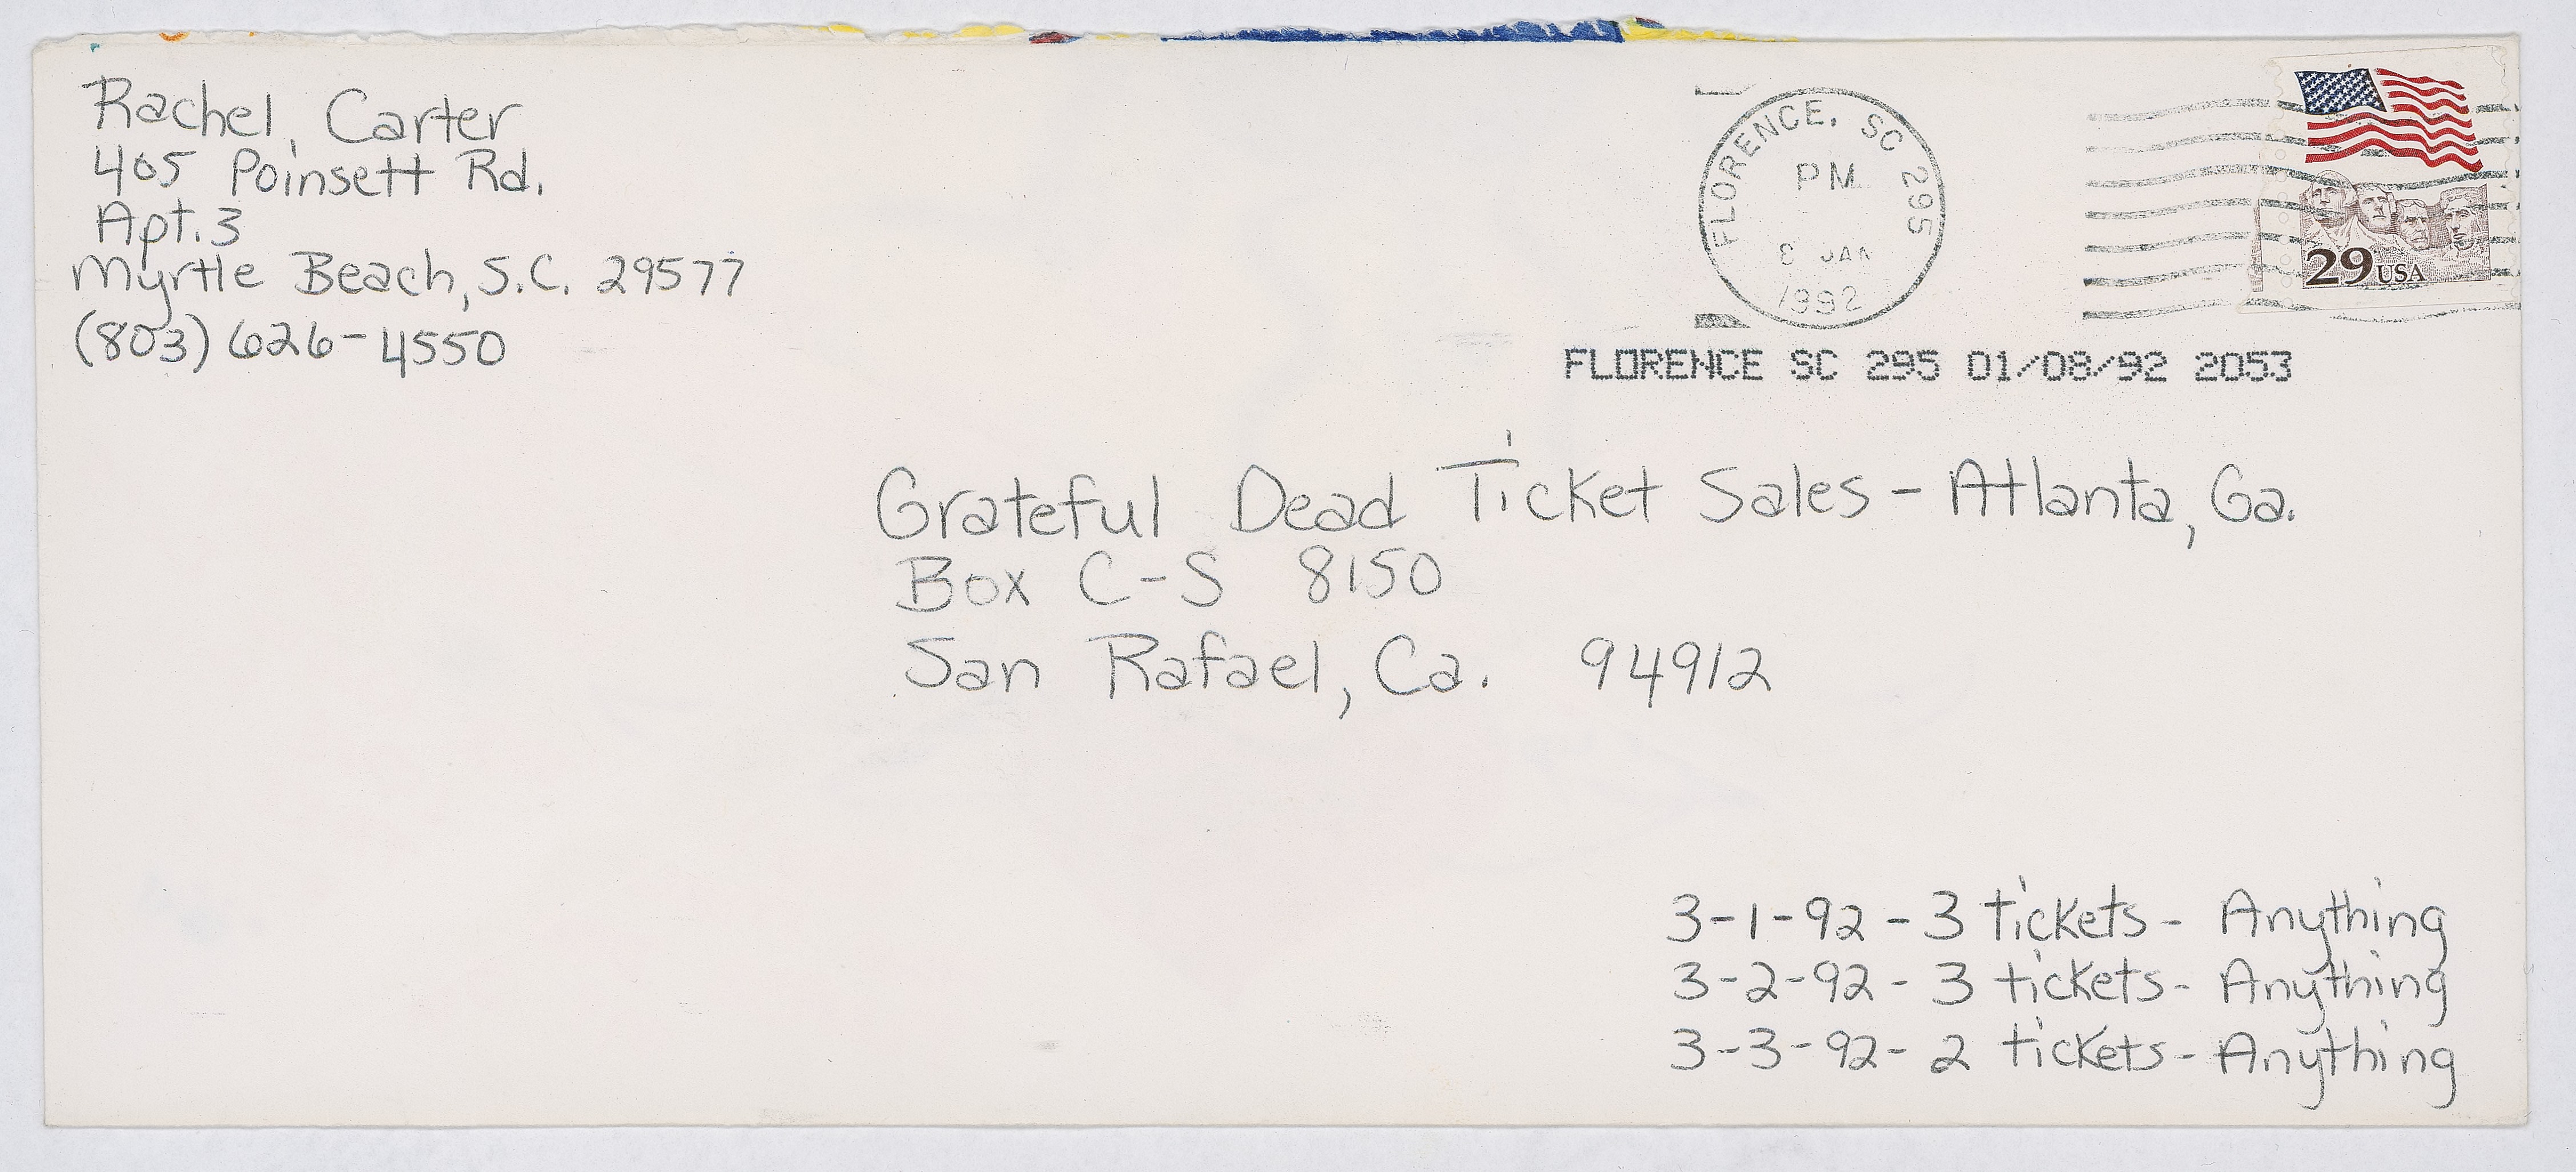 Rachel Carter
405 Poinsett Rd.
Apt. 3
Myrtle Beach, S.C. 29577
(803) 626-4550
FLORENCE, SC 295
PM
8 JAN
1992
29 USA
FLORENCE SC 295 01/08/92 2053
Grateful Dead Ticket Sales - Atlanta, Ga.
Box C-S 8150
San Rafael, Ca. 94912
3-1-92 - 3 tickets - Anything
3-2-92 - 3 tickets - Anything
3-3-92 - 2 tickets - Anything